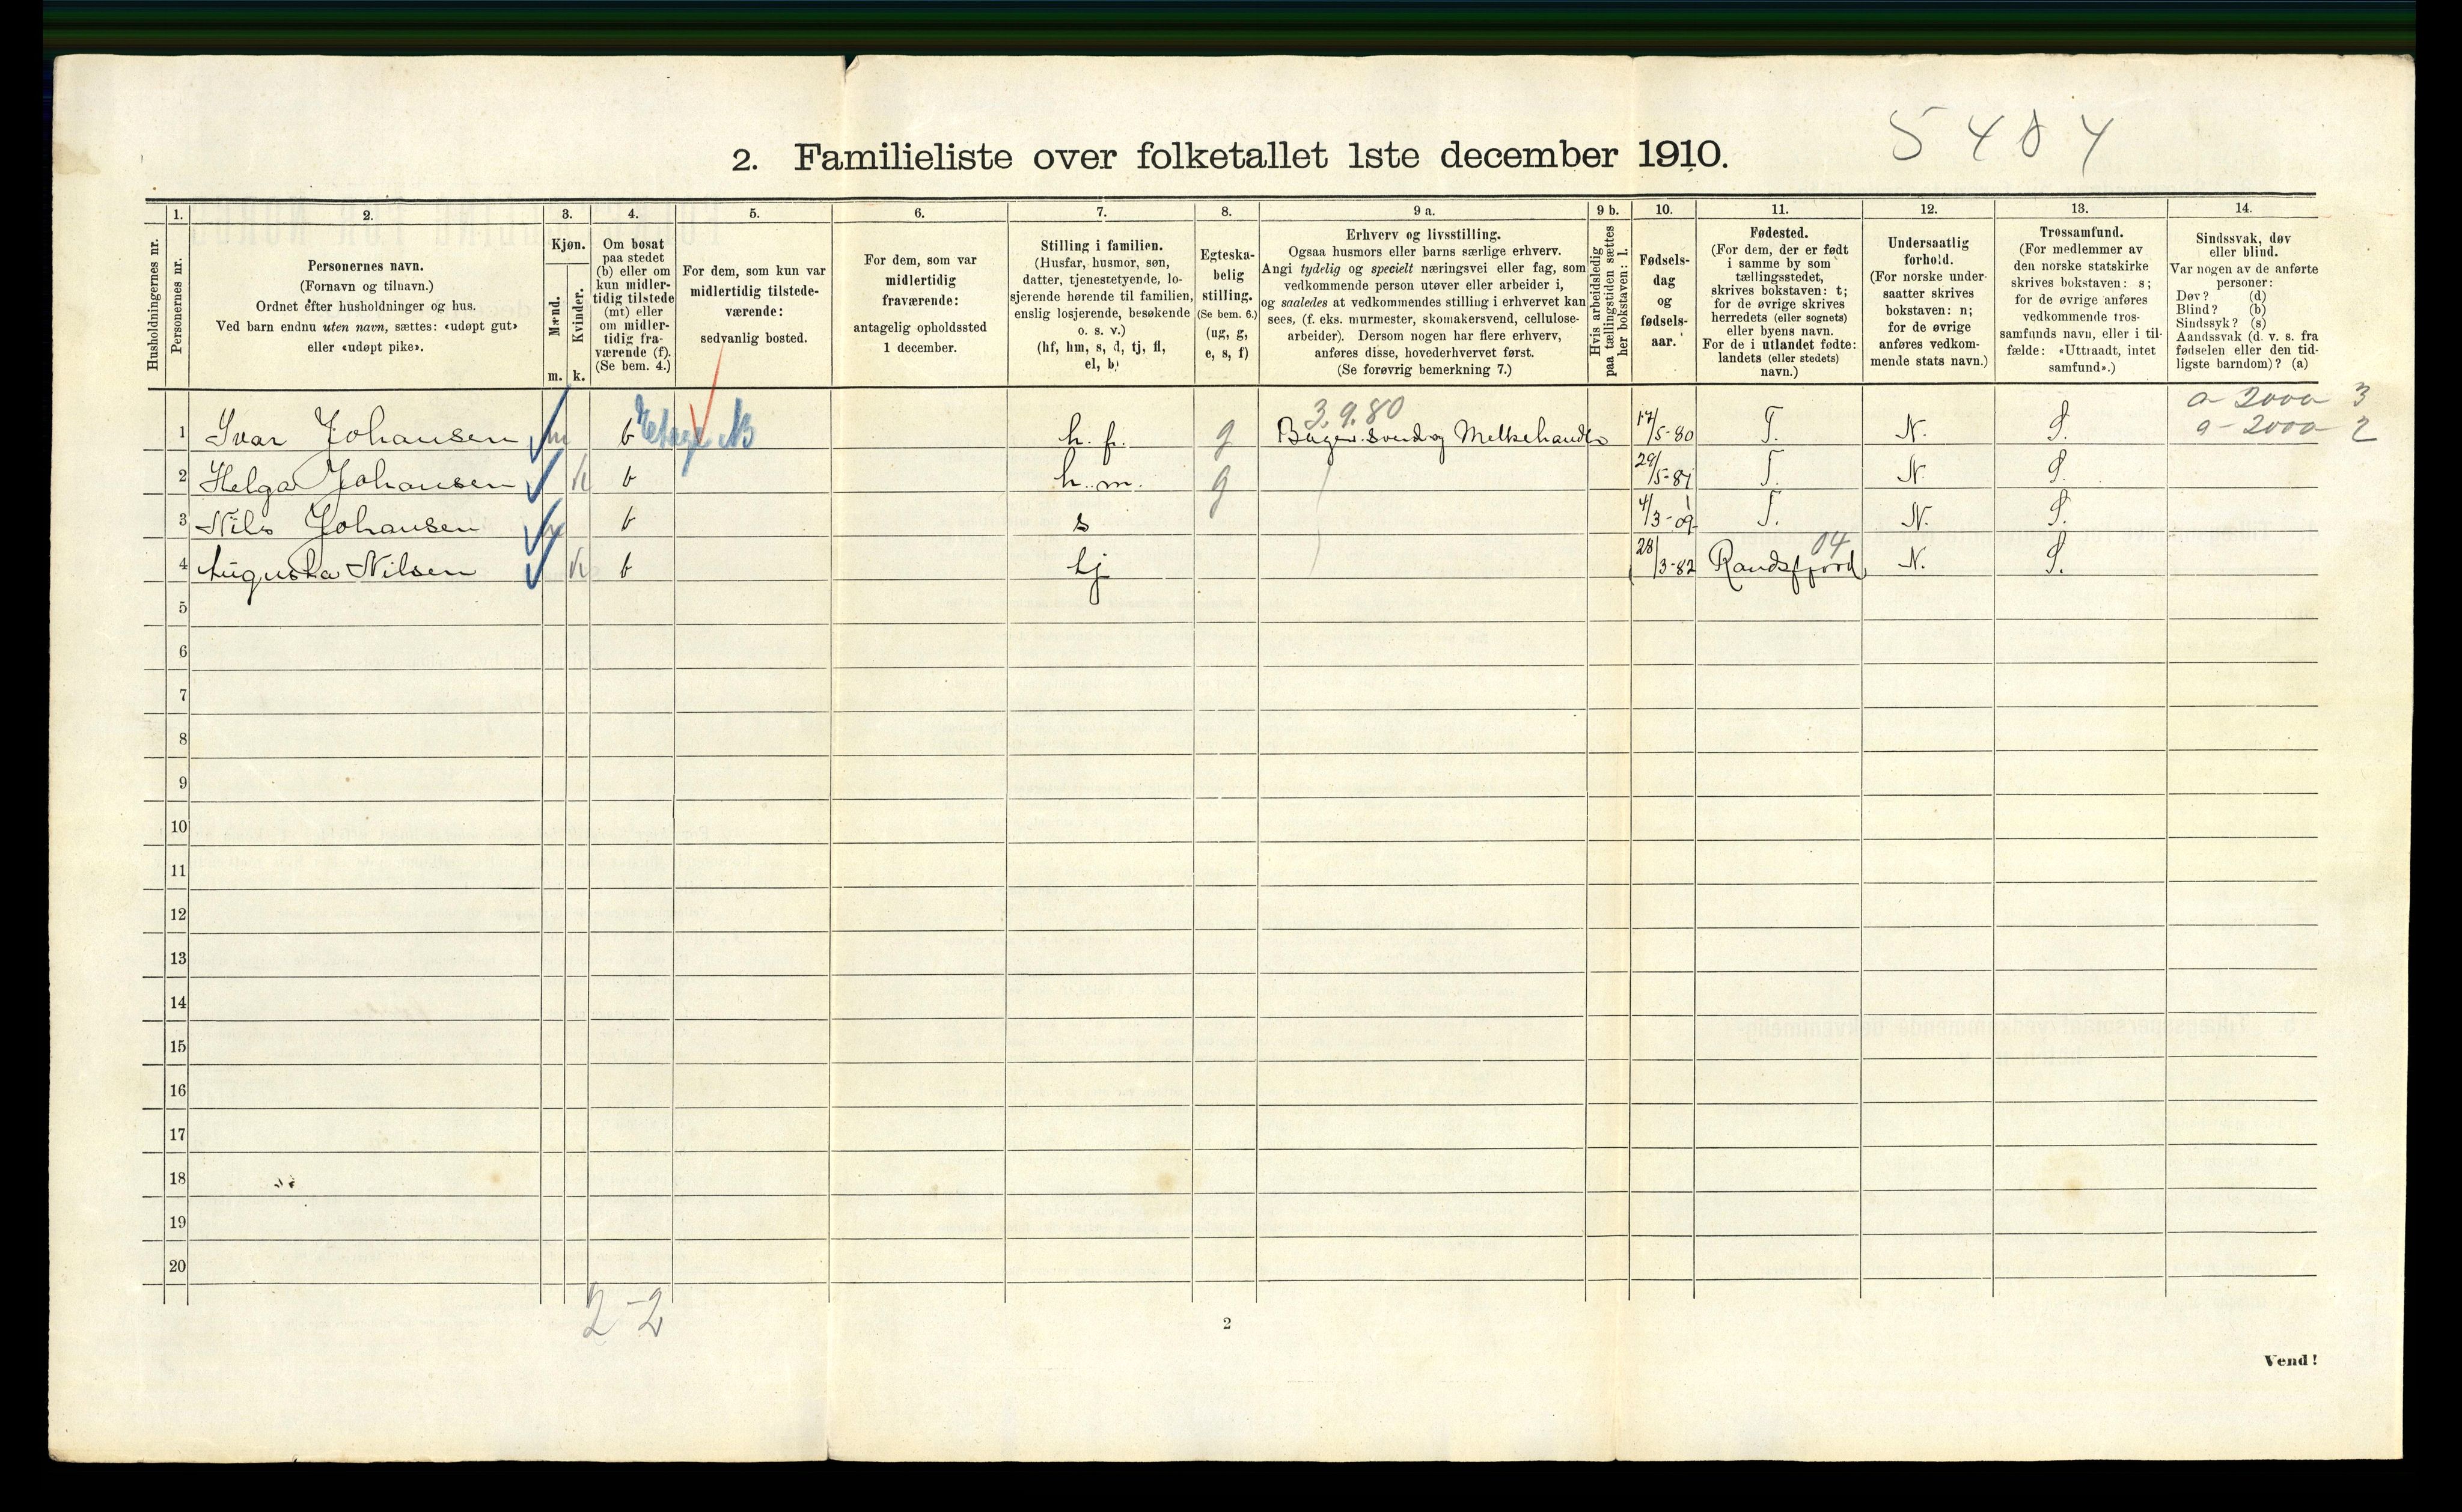 5484
2. Familieliste over folketallet 1ste december 1910.
1. 2. 3. 4. 5. 6. 7. 8. 9 a. 9 b. 10. 11. 12. 13. 14.
Husholdningernes nr.
Personernes nr.
Personernes navn.
(Fornavn og tilnavn.)
Ordnet efter husholdninger og hus.
Ved barn endnu uten navn, sættes: «udøpt gut»
eller «udøpt pike».
Kjøn.
Mænd.
Kvinder.
m. k.
Om bosat
paa stedet
(b) eller om
kun midler-
tidig tilstede
(mt) eller
om midler-
tidig fra-
værende (f).
(Se bem. 4.)
For dem, som kun var
midlertidig tilstede-
værende:
sedvanlig bosted.
For dem, som var
midlertidig
fraværende:
antagelig opholdssted
1 december.
Stilling i familien.
(Husfar, husmor, søn,
datter, tjenestetyende, lo-
sjerende hørende til familien,
enslig losjerende, besøkende
o. s. v.)
(hf, hm, s, d, tj, fl,
el, b)
Egteska-
belig
stilling.
(Se bem. 6.)
(ug, g,
e, s, f)
Erhverv og livsstilling.
Ogsaa husmors eller barns særlige erhverv.
Angi tydelig og specielt næringsvei eller fag, som
vedkommende person utøver eller arbeider i,
og saaledes at vedkommendes stilling i erhvervet kan
sees, (f. eks. murmester, skomakersvend, cellulose-
arbeider). Dersom nogen har flere erhverv,
anføres disse, hovederhvervet først.
(Se forøvrig bemerkning 7.)
Hvis arbeidsledig
paa tællingstiden sættes
her bokstaven: l.
Fødsels-
dag
og
fødsels-
aar.
Fødested.
(For dem, der er født
i samme by som
tællingsstedet,
skrives bokstaven: t;
for de øvrige skrives
herredets (eller sognets)
eller byens navn.
For de i utlandet fødte:
landets (eller stedets)
navn.)
Undersaatlig
forhold.
(For norske under-
saatter skrives
bokstaven: n;
for de øvrige
anføres vedkom-
mende stats navn.)
Trossamfund.
(For medlemmer av
den norske statskirke
skrives bokstaven: s;
for de øvrige anføres
vedkommende tros-
samfunds navn, eller i til-
fælde: «Uttraadt, intet
samfund».)
Sindssvak, døv
eller blind.
Var nogen av de anførte
personer:
Døv? (d)
Blind? (b)
Sindssyk? (s)
Aandssvak (d. v. s. fra
fødselen eller den tid-
ligste barndom)? (a)
3.9.80 a-2000 3
1 Ivar Johansen m b Etage h. f. g Bager.svend og Melkehandler 17/5-80 T. N. S. a-2000 2
2 Helga Johansen k b h. m. g 29/5-81 T. N. S.
3 Nils Johansen m b s 4/3-09 T. N. S.
04
4 Augusta Nilsen k b tj 28/3-82 Randsfjord N. S.
5
6
7
8
9
10
11
12
13
14
15
16
17
18
19
20
2-2
2
Vend!